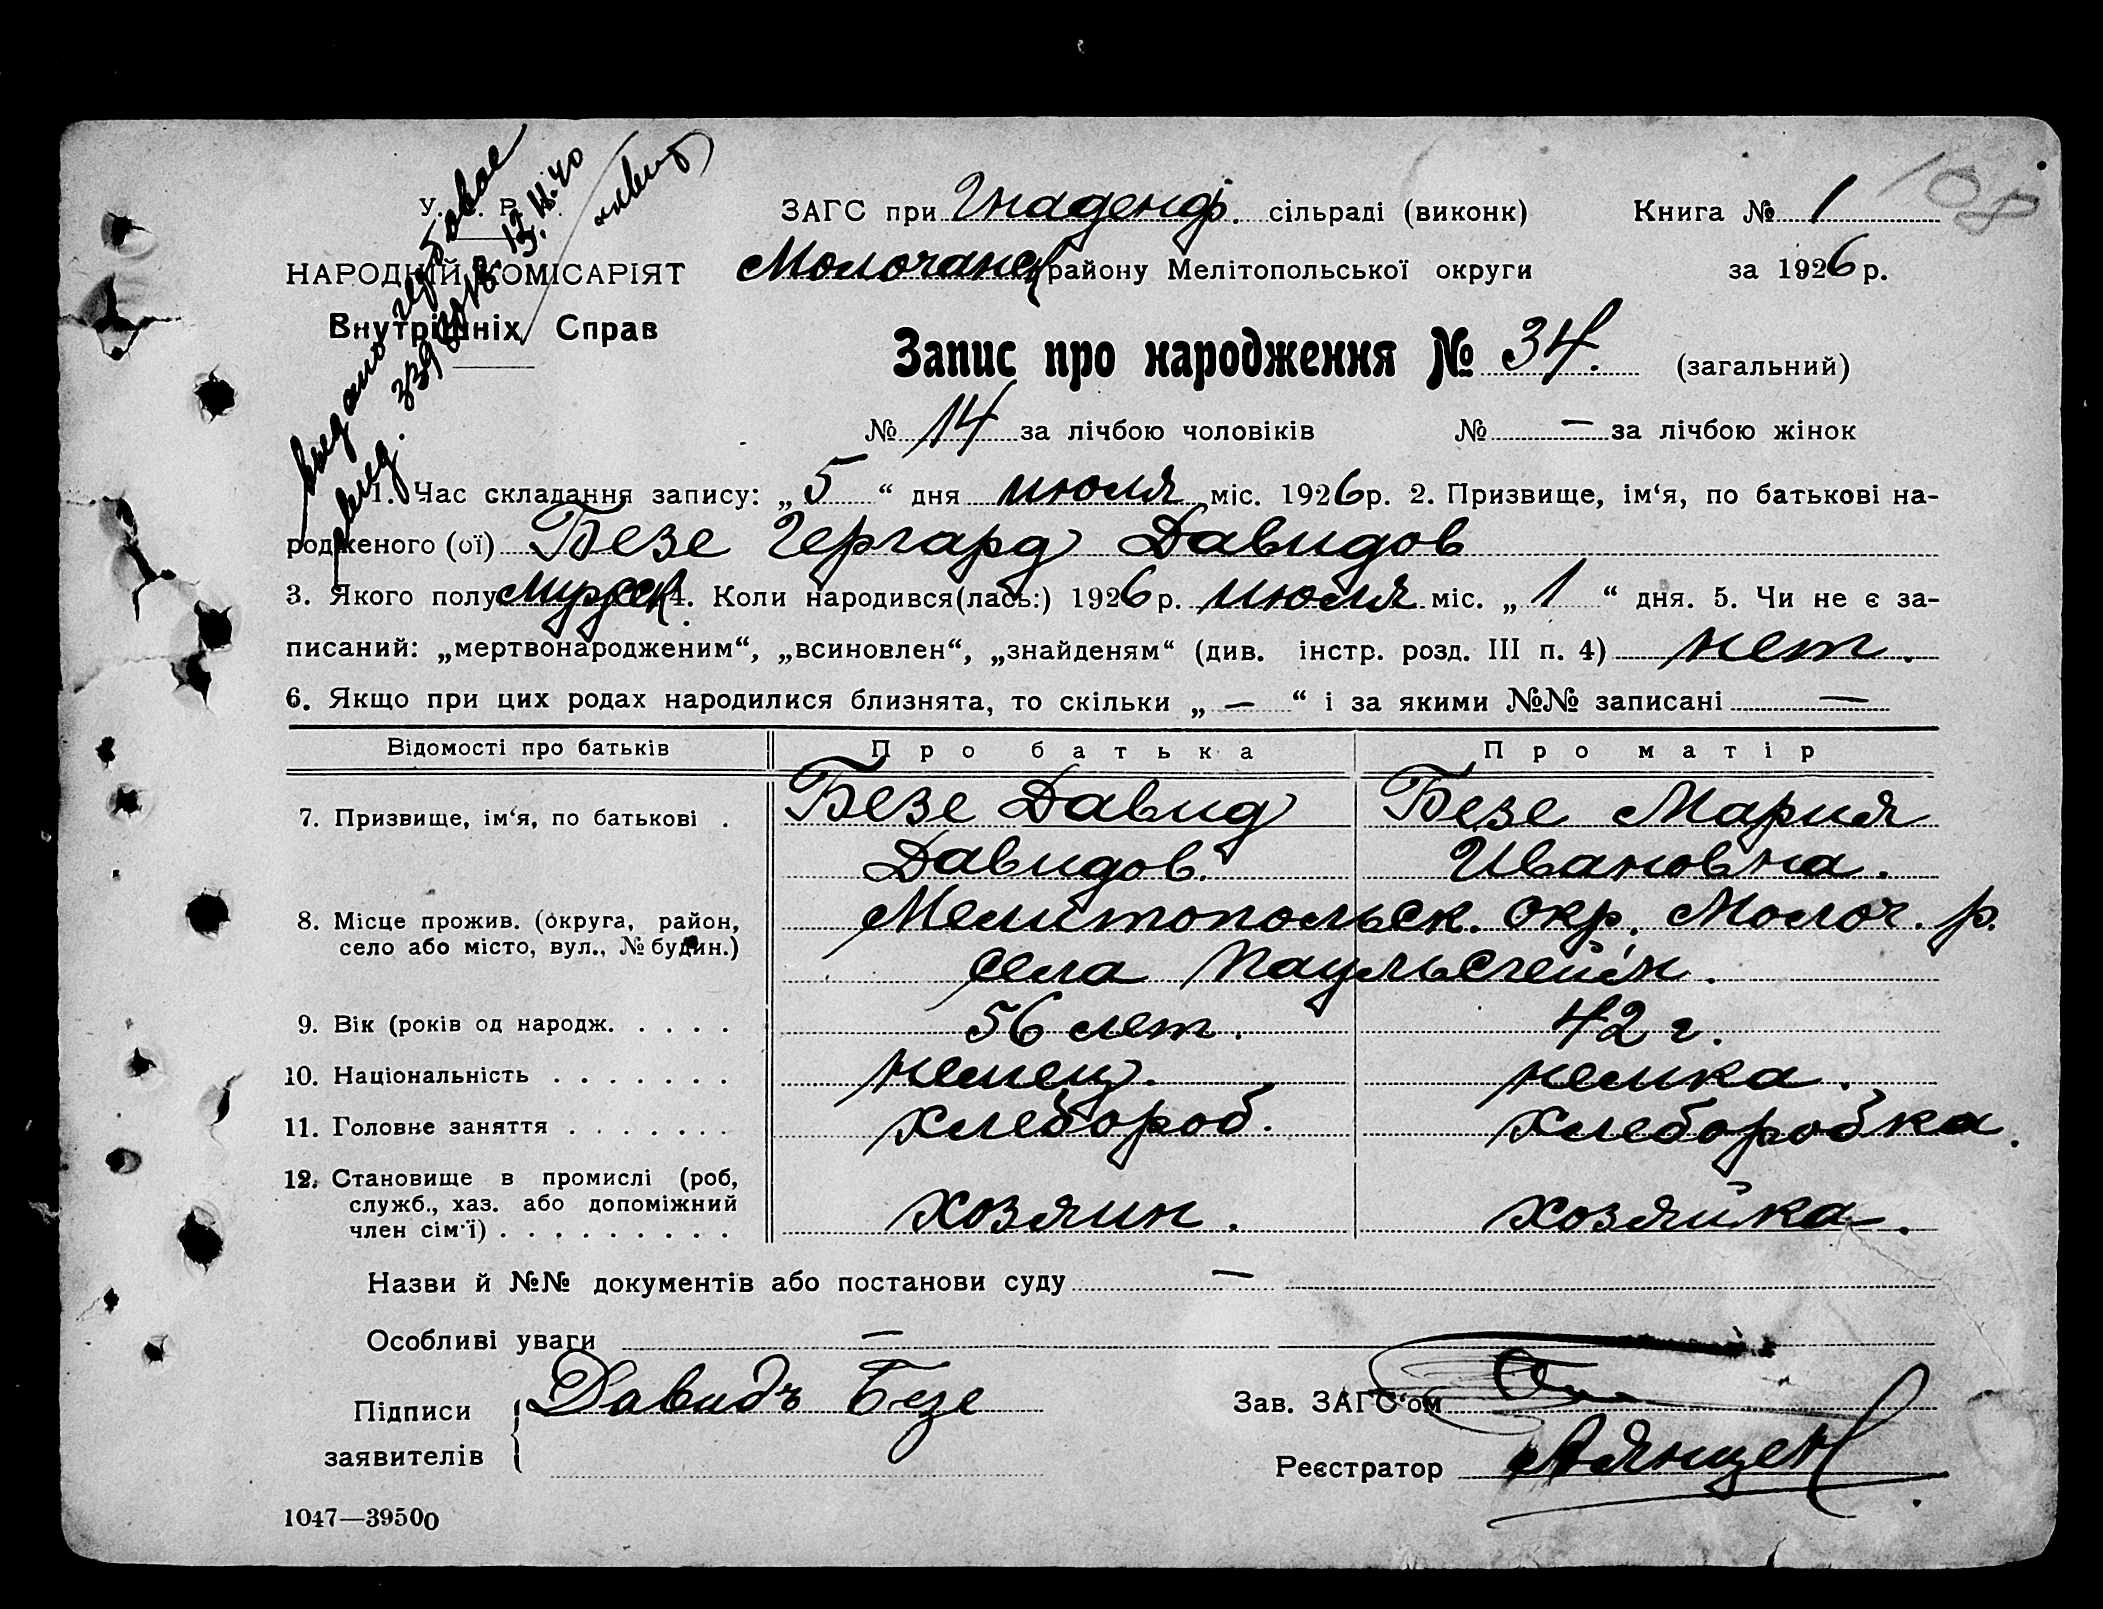 108
У. Р.
ЗАГС при Гнаденф. сільраді (виконк) Книга № 1
НАРОДНІЙ КОМІСАРІЯТ Молочанск району Мелітопольської округи за 1926 р.
Внутрішніх Справ
Запис про народження № 34. (загальний)
№ 14 за лічбою чоловіків № — за лічбою жінок
1. Час складання запису: „5“ дня июля міс. 1926 р. 2. Призвище, ім‘я, по батькові на-
родженого (ої) Безе Гергард Давидов
3. Якого полу мужск. 4. Коли народився(лась:) 1926 р. июля міс. „1“ дня. 5. Чи не є за-
писаний: „мертвонародженим“, „всиновлен“, „знайденям“ (див. інстр. розд. III п. 4) нет.
6. Якщо при цих родах народилися близнята, то скільки „—“ і за якими №№ записані —
Відомості про батьків Про батька Про матір
7. Призвище, ім‘я, по батькові . Безе Давид Безе Мария
Давидов. Ивановна.
8. Місце прожив. (округа, район, Мелитопольск. окр. Молоч. р.
село або місто, вул., № будин.) села Паульсгейм.
9. Вік (років од народж. . . . . 56 лет. 42 г.
10. Національність . . . . . . . немец. немка.
11. Головне заняття . . . . . . . хлебороб. хлеборобка.
12. Становище в промислі (роб,
служб., хаз. або допоміжний
член сім'ї) . . . . . . . . . хозяин. хозяйка.
Назви й №№ документів або постанови суду —
Особливі уваги —
Підписи Давидъ Безе Зав. ЗАГС‘ом
заявителів Реєстратор
1047—39500